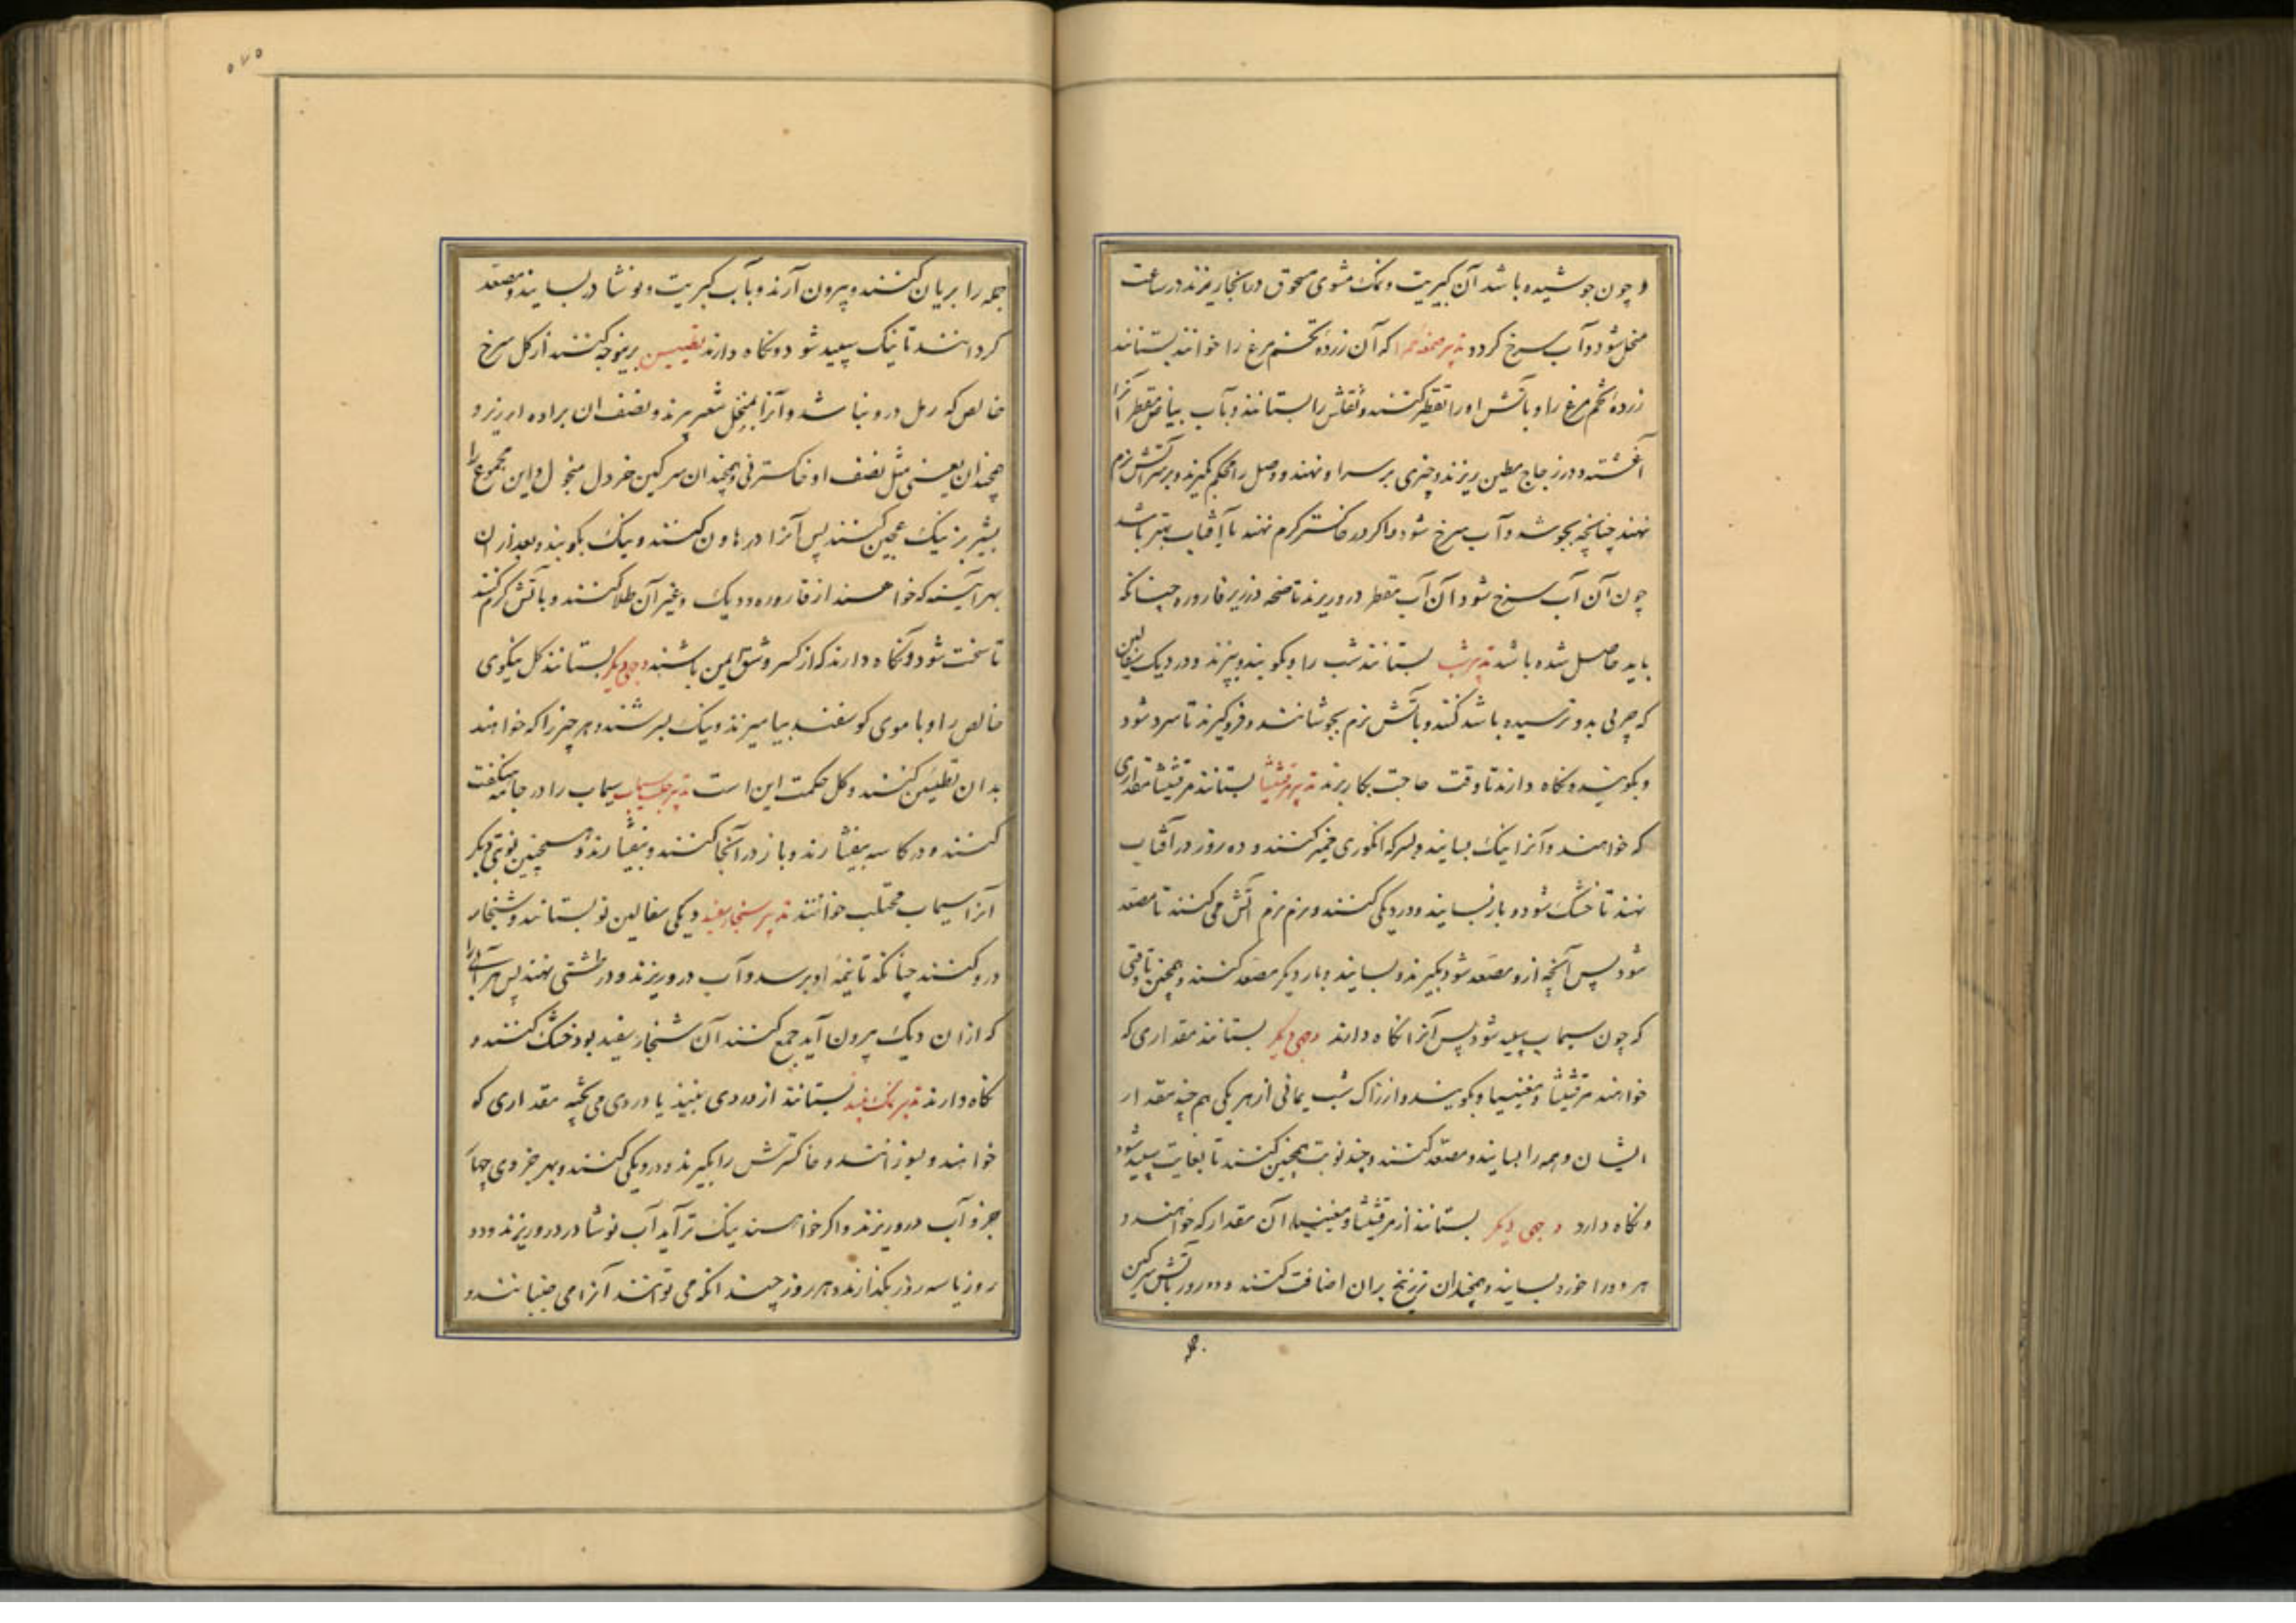 و چون جوشیده باشد آن کبریت و نمک مشوی مسحوق در آنجا ریزند در ساعت
منحل شود و آب سرخ کردد تدبیر صمغه حمرا که آن زرده تخم مرغ را خوانند بستانند
زرده تخم مرغ را و بآتش او را تقطیر کنند و ثفلش را بستانند و بآب بیاض مقطر آنرا
آغشته و در زجاج مطین ریزند و چیزی بر سر او نهند و وصل را محکم کیرند و بر سر آتش نرم
نهند چنانچه بجوشد و آب سرخ شود و اکر در خاکستر کرم نهند یا آفتاب بهتر باشد
چون آن آب سرخ شود آن آب مقطر در و ریزند تا صمغه در زیر قاروره چنانکه
باید حاصل شده باشد تدبیر شب بستانند شب را و بکوبند و ببیزند و در دیک سفالین
که چربی بدو نرسیده باشد کنند و بآتش نرم بجوشانند و فرو کیرند تا سرد شود
و بکوبند و نکاه دارند تا وقت حاجت بکار برند تدبیر مرقشیشا بستانند مرقشیشا مقداری
که خواهند و آنرا نیک بسایند و بسرکه انکوری خمیر کنند و ده روز در آفتاب
نهند تا خشک شود و باز بسایند و در دیکی کنند و نرم نرم آتش می کنند تا مصعد
شود پس آنچه ازو مصعد شود بکیرند و بسایند و بار دیکر مصعد کنند و همچنین تا وقتی
که چون سیماب سپید شود پس آنرا نکاه دارند وجهی دیکر بستانند مقداری که
خواهند مرقشیشا و مغنیسیا و بکوبند و از زاک و شب یمانی از هر یکی هم چند مقدار
ایشان و همه را بسایند و مصعد کنند و چند نوبت همچنین کنند تا بغایت سپید شود
و نکاه دارد وجهی دیکر بستانند از مرقشیشا و مغنیسیا آن مقدار که خواهند و
هر دو را خورد بسایند و همچندان زرنیخ بران اضافت کنند و دو روز بآتش سرکین
جمله را بریان کنند و بیرون آرند و بآب کبریت و نوشادر بسایند و مصعد
کردانند تا نیک سپید شود و نکاه دارند تطیین برینوجه کنند از کل سرخ
خالص که رمل درو نباشد و آنرا بمنخل شعر ببیزند و نصف ان براده ارزیز و
همچندان یعنی مثل نصف او خاکستر نی و همچندان سرکین خر دل منخول و این مجموع را
بشیر بز نیک عجین کنند پس آنرا در هاون کنند و نیک بکوبند و بعد از ان
بهر آینه که خواهند از قاروره و دیک و غیر آن طلا کنند و بآتش کرم کنند
تا سخت شود و نکاه دارند که از کسر و شق ایمن باشند وجهی دیکر بستانند کل نیکوی
خالص را و با موی کوسفند بیامیزند و نیک بسرشند و هر چیز را که خواهند
بدان تطیین کنند و کل حکمت این است تدبیر حلب سیماب سیماب را در جامه هنکفت
کنند و در کاسه بیفشارند و باز در آنجا کنند و بیفشارند و همچنین نوبتی دیکر
آنرا سیماب محتلب خوانند تدبیر سنجار سفید دیکی سفالین نو بستانند و شنجار
درو کنند چنانکه تا نیمه او برسد و آب در و ریزند و در طشتی نهند پس هر آبی را
که از ان دیک بیرون آید جمع کنند آن شنجار سفید بود خشک کنند و
نکاه دارند تدبیر نمک نبید بستانند از دردی نبیذ یا دردی می پخته مقداری که
خواهند و بسوزانند و خاکسترش را بکیرند و در دیکی کنند و بهر جزوی چهار
جزو آب درو ریزند و اکر خواهند نیک تر آید آب نوشادر در و ریزند و دو
روز یا سه روز بکذارند و هر روز چندانکه می توانند آنرا می جنبانند و